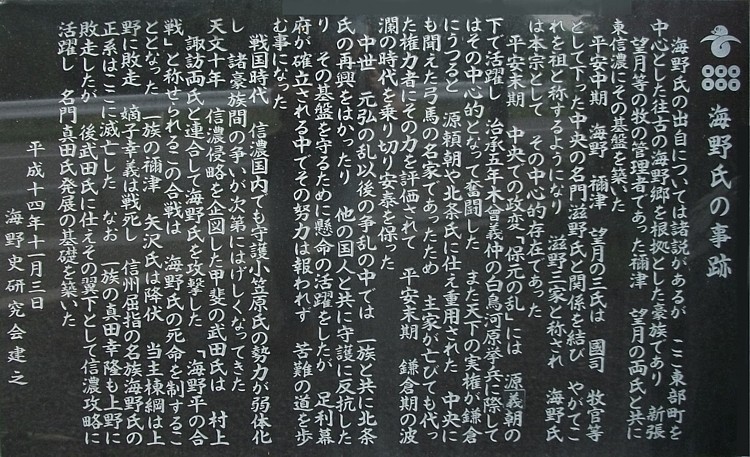 海野氏の事跡
海野氏の出自については諸説があるが　ここ東部町を
中心とした往古の海野郷を根拠とした豪族であり　新張
望月等の牧の管理者であった禰津　望月の両氏と共に
東信濃にその基盤を築いた
平安中期　海野　禰津　望月の三氏は　國司　牧官等
として下った中央の名門滋野氏と関係を結び　やがてこ
れを祖と称するようになり　滋野三家と称され　海野氏
は本宗として　その中心的存在であった
平安末期　中央での政変「保元の乱」には　源義朝の
下で活躍し　治承五年木曾義仲の白鳥河原挙兵に際して
はその中心的となって奮闘した　また天下の実権が鎌倉
にうつると　源頼朝や北条氏に仕え重用された　中央に
も聞えた弓馬の名家であったため　主家が亡びても代っ
た権力者にその力を評価されて　平安末期　鎌倉期の波
瀾の時代を乗り切り安泰を保った
中世　元弘の乱以後の争乱の中では　一族と共に北条
氏の再興をはかったり　他の国人と共に守護に反抗した
り　その基盤を守るために懸命の活躍をしたが　足利幕
府が確立される中でその努力は報われず　苦難の道を歩
む事になった
戦国時代　信濃国内でも守護小笠原氏の勢力が弱体化
し　諸豪族間の争いが次第にはげしくなってきた
天文十年　信濃侵略を企図した甲斐の武田氏は　村上
諏訪両氏と連合して海野氏を攻撃した　「海野平の合
戦」と称せられるこの合戦は　海野氏の死命を制するこ
ととなった　一族の禰津　矢沢氏は降伏　当主棟綱は上
野に敗走　嫡子幸義は戦死し　信州屈指の名族海野氏の
正系はここに滅亡した　なお　一族の真田幸隆も上野に
敗走したが　後武田氏に仕えその翼下として信濃攻略に
活躍し　名門真田氏発展の基礎を築いた
平成十四年十一月三日
海野史研究会建之